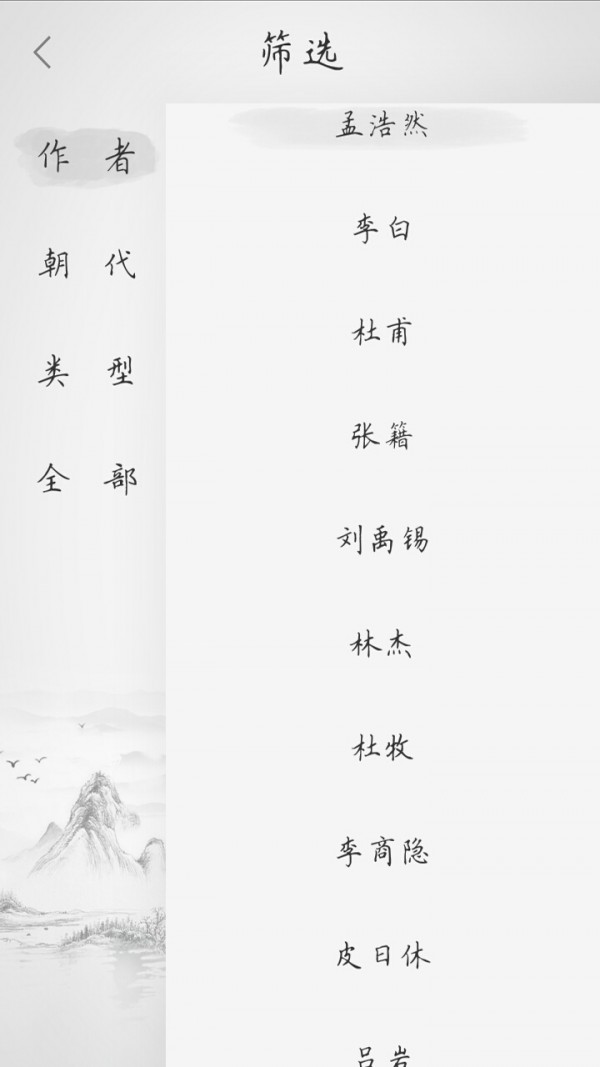 筛选
作 者
朝 代
类 型
全 部
孟浩然
李白
杜甫
张籍
刘禹锡
林杰
杜牧
李商隐
皮日休
吕岩